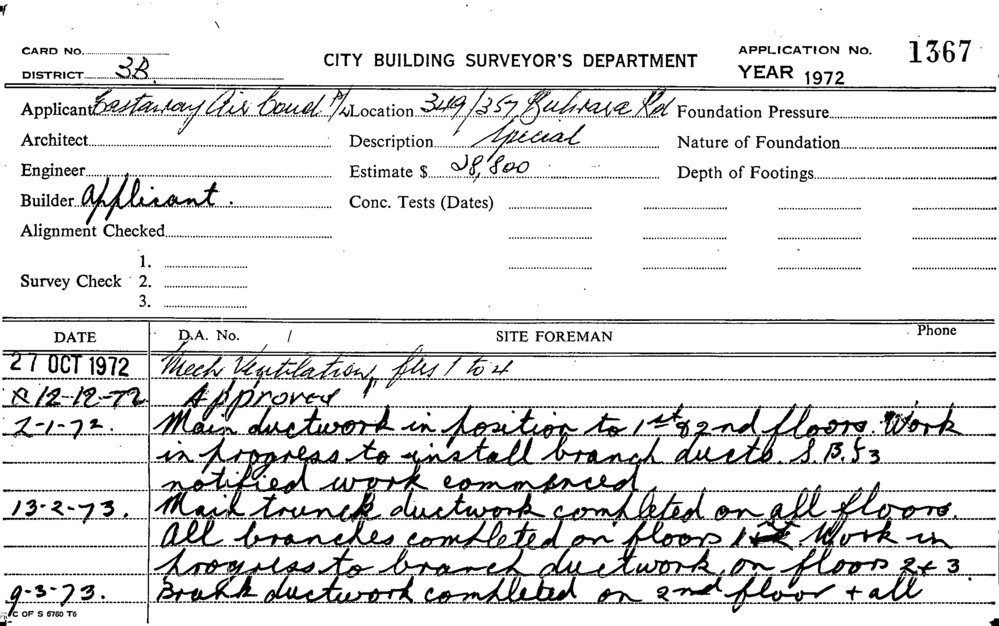 CARD No.
DISTRICT 3B.
CITY BUILDING SURVEYOR'S DEPARTMENT
APPLICATION No. 1367
YEAR 1972
Applicant Eastaway Air Cond P/L Location 349/357 Bulwara Rd Foundation Pressure
Architect Description Special Nature of Foundation
Engineer Estimate $ 28,800 Depth of Footings
Builder Applicant. Conc. Tests (Dates)
Alignment Checked
1.
Survey Check 2.
3.
DATE D.A. No. / SITE FOREMAN Phone
27 OCT 1972 Mech Ventilation, flrs 1 to 4
12-12-72 Approved
2-1-72. Main ductwork in position to 1st & 2nd floors. Work
in progress to install branch ducts. S.B.
notified work commenced
13-2-73. Main trunck ductwork completed on all floors.
All branches completed on floors 1 Work in
progress to branch ductwork on floors 2+3.
9-3-73. ductwork completed on 2nd floor + all
C OF S 6760 T6